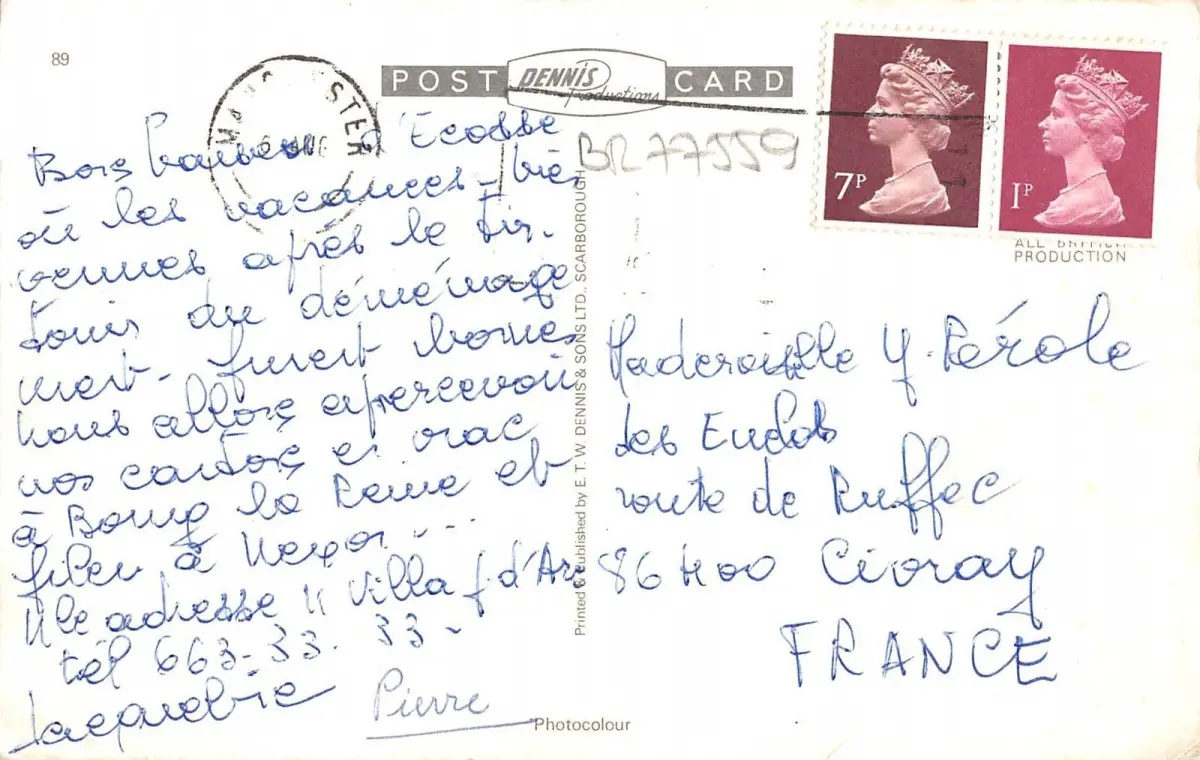 89
POST DENNIS Productions CARD
MANCHESTER
BR77559
7P
1P
ALL BRITISH
PRODUCTION
Printed & Published by E. T. W. DENNIS & SONS LTD., SCARBOROUGH
Bons d'Ecosse
où les vacances - bie
venues après le
du déménage
ment - furent bonnes
nous allons apercevoir
nos cartons en vrac
à Bourg la Reine et
filer à
Nle adresse 4 Villa J. d'Arc
tél 663-33. 33-
Jacqueline Pierre
Mademoiselle Y. Pérole
les Enclos
route de Ruffec
86400 Civray
FRANCE
Photocolour